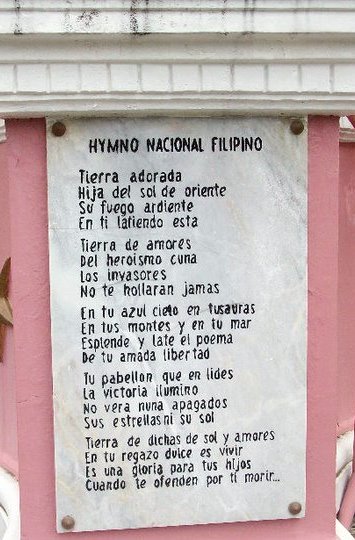 HYMNO NACIONAL FILIPINO
Tierra adorada
Hija del sol de oriente
Su fuego ardiente
En ti latiendo esta
Tierra de amores
Del heroismo cuna
Los invasores
No te hollaran jamas
En tu azul cielo en tusauras
En tus montes y en tu mar
Esplende y late el poema
De tu amada libertad
Tu pabellon que en lides
La victoria ilumino
No vera nuna apagados
Sus estrellasni su sol
Tierra de dichas de sol y amores
En tu regazo dulce es vivir
Es una gloria para tus hijos
Cuando te ofenden por ti morir...